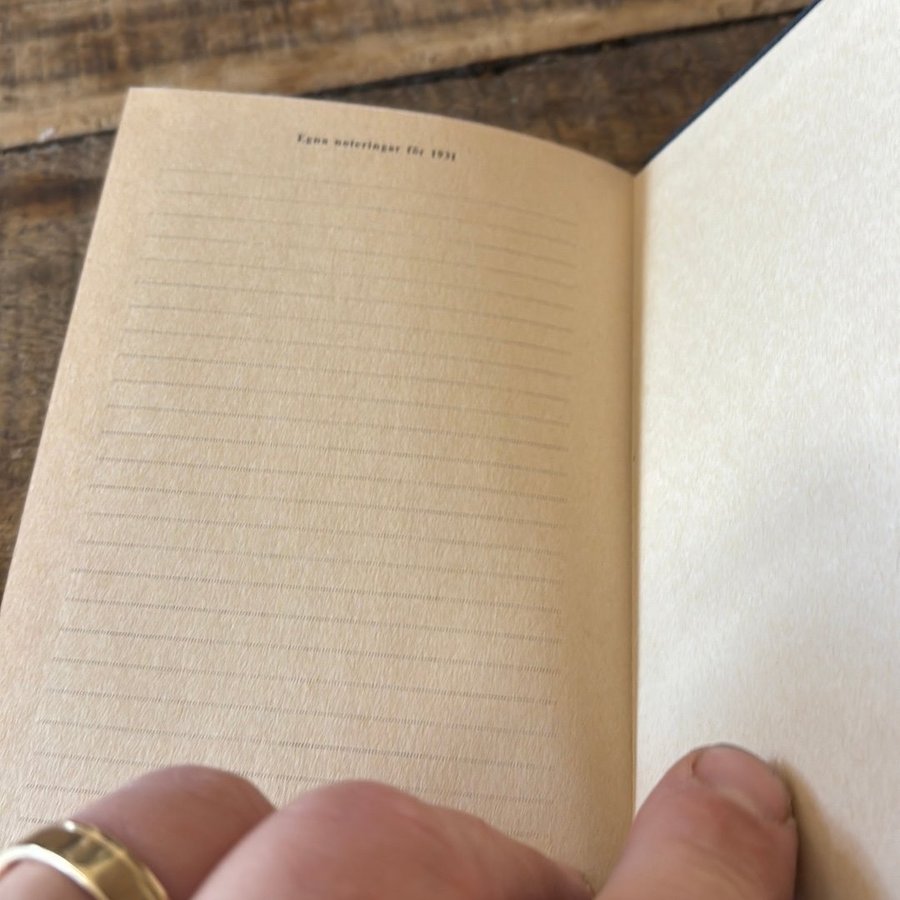 Egna noteringar för 1931